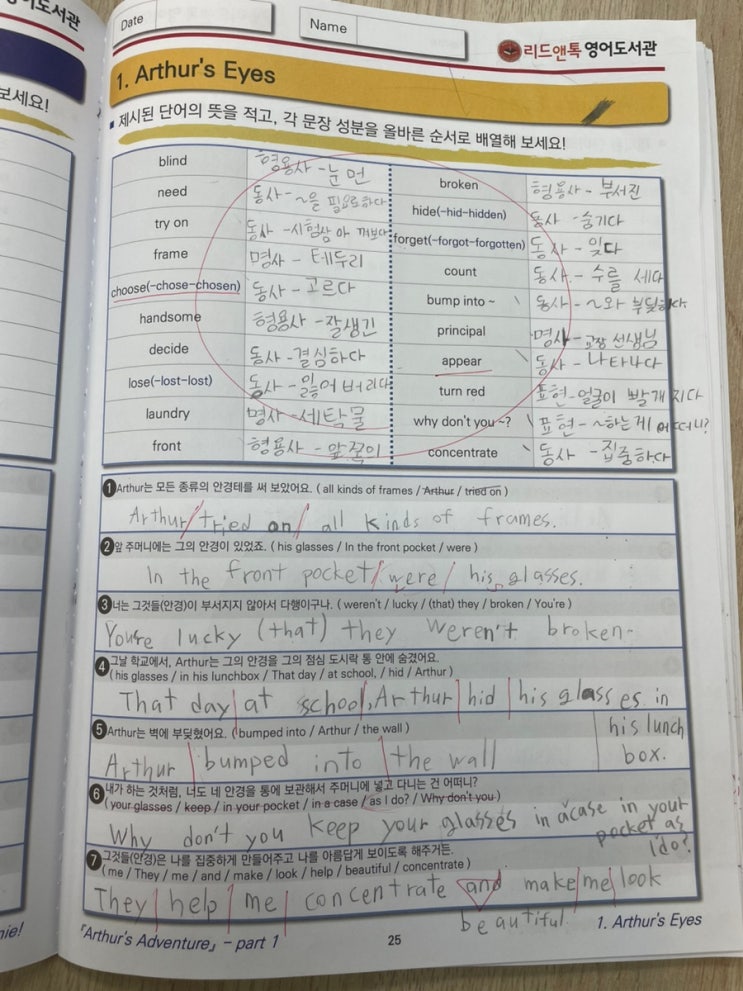 어도서관
Date
Name
리드앤톡 영어도서관
보세요!
1. Arthur's Eyes
제시된 단어의 뜻을 적고, 각 문장 성분을 올바른 순서로 배열해 보세요!
blind 형용사 - 눈 먼
need 동사 - ~을 필요로하다
try on 동사 - 시험삼아 껴보다
frame 명사 - 테두리
choose(-chose-chosen) 동사 - 고르다
handsome 형용사 - 잘생긴
decide 동사 - 결심하다
lose(-lost-lost) 동사 - 잃어버리다
laundry 명사 - 세탁물
front 형용사 - 앞쪽의
broken 형용사 - 부서진
hide(-hid-hidden) 동사 - 숨기다
forget(-forgot-forgotten) 동사 - 잊다
count 동사 - 수를 세다
bump into ~ 동사 - ~와 부딪히다
principal 명사 - 교장 선생님
appear 동사 - 나타나다
turn red 표현 - 얼굴이 빨개지다
why don't you ~? 표현 - ~하는게 어떠니?
concentrate 동사 - 집중하다
1 Arthur는 모든 종류의 안경테를 써 보았어요. ( all kinds of frames / Arthur / tried on )
Arthur / tried on / all kinds of frames.
2 앞 주머니에는 그의 안경이 있었죠. ( his glasses / In the front pocket / were )
In the front pocket / were / his glasses.
3 너는 그것들(안경)이 부서지지 않아서 다행이구나. ( weren't / lucky / (that) they / broken / You're )
You're lucky (that) they weren't broken.
4 그날 학교에서, Arthur는 그의 안경을 그의 점심 도시락 통 안에 숨겼어요.
(his glasses / in his lunchbox / That day / at school, / hid / Arthur)
That day | at school, Arthur | hid | his glasses in
his lunch
box.
5 Arthur는 벽에 부딪혔어요. ( bumped into / Arthur / the wall )
Arthur | bumped into | the wall
6 내가 하는 것처럼, 너도 네 안경을 통에 보관해서 주머니에 넣고 다니는 건 어떠니?
( your glasses / keep / in your pocket / in a case / as I do? / Why don't you )
Why don't you keep your glasses in a case in your
pocket as
I do?
7 그것들(안경)은 나를 집중하게 만들어주고 나를 아름답게 보이도록 해주거든.
( me / They / me / and / make / look / help / beautiful / concentrate )
They | help | me | concentrate and make | me | look
beautiful.
nie!
『Arthur's Adventure』 – part 1
25
1. Arthur's Eyes